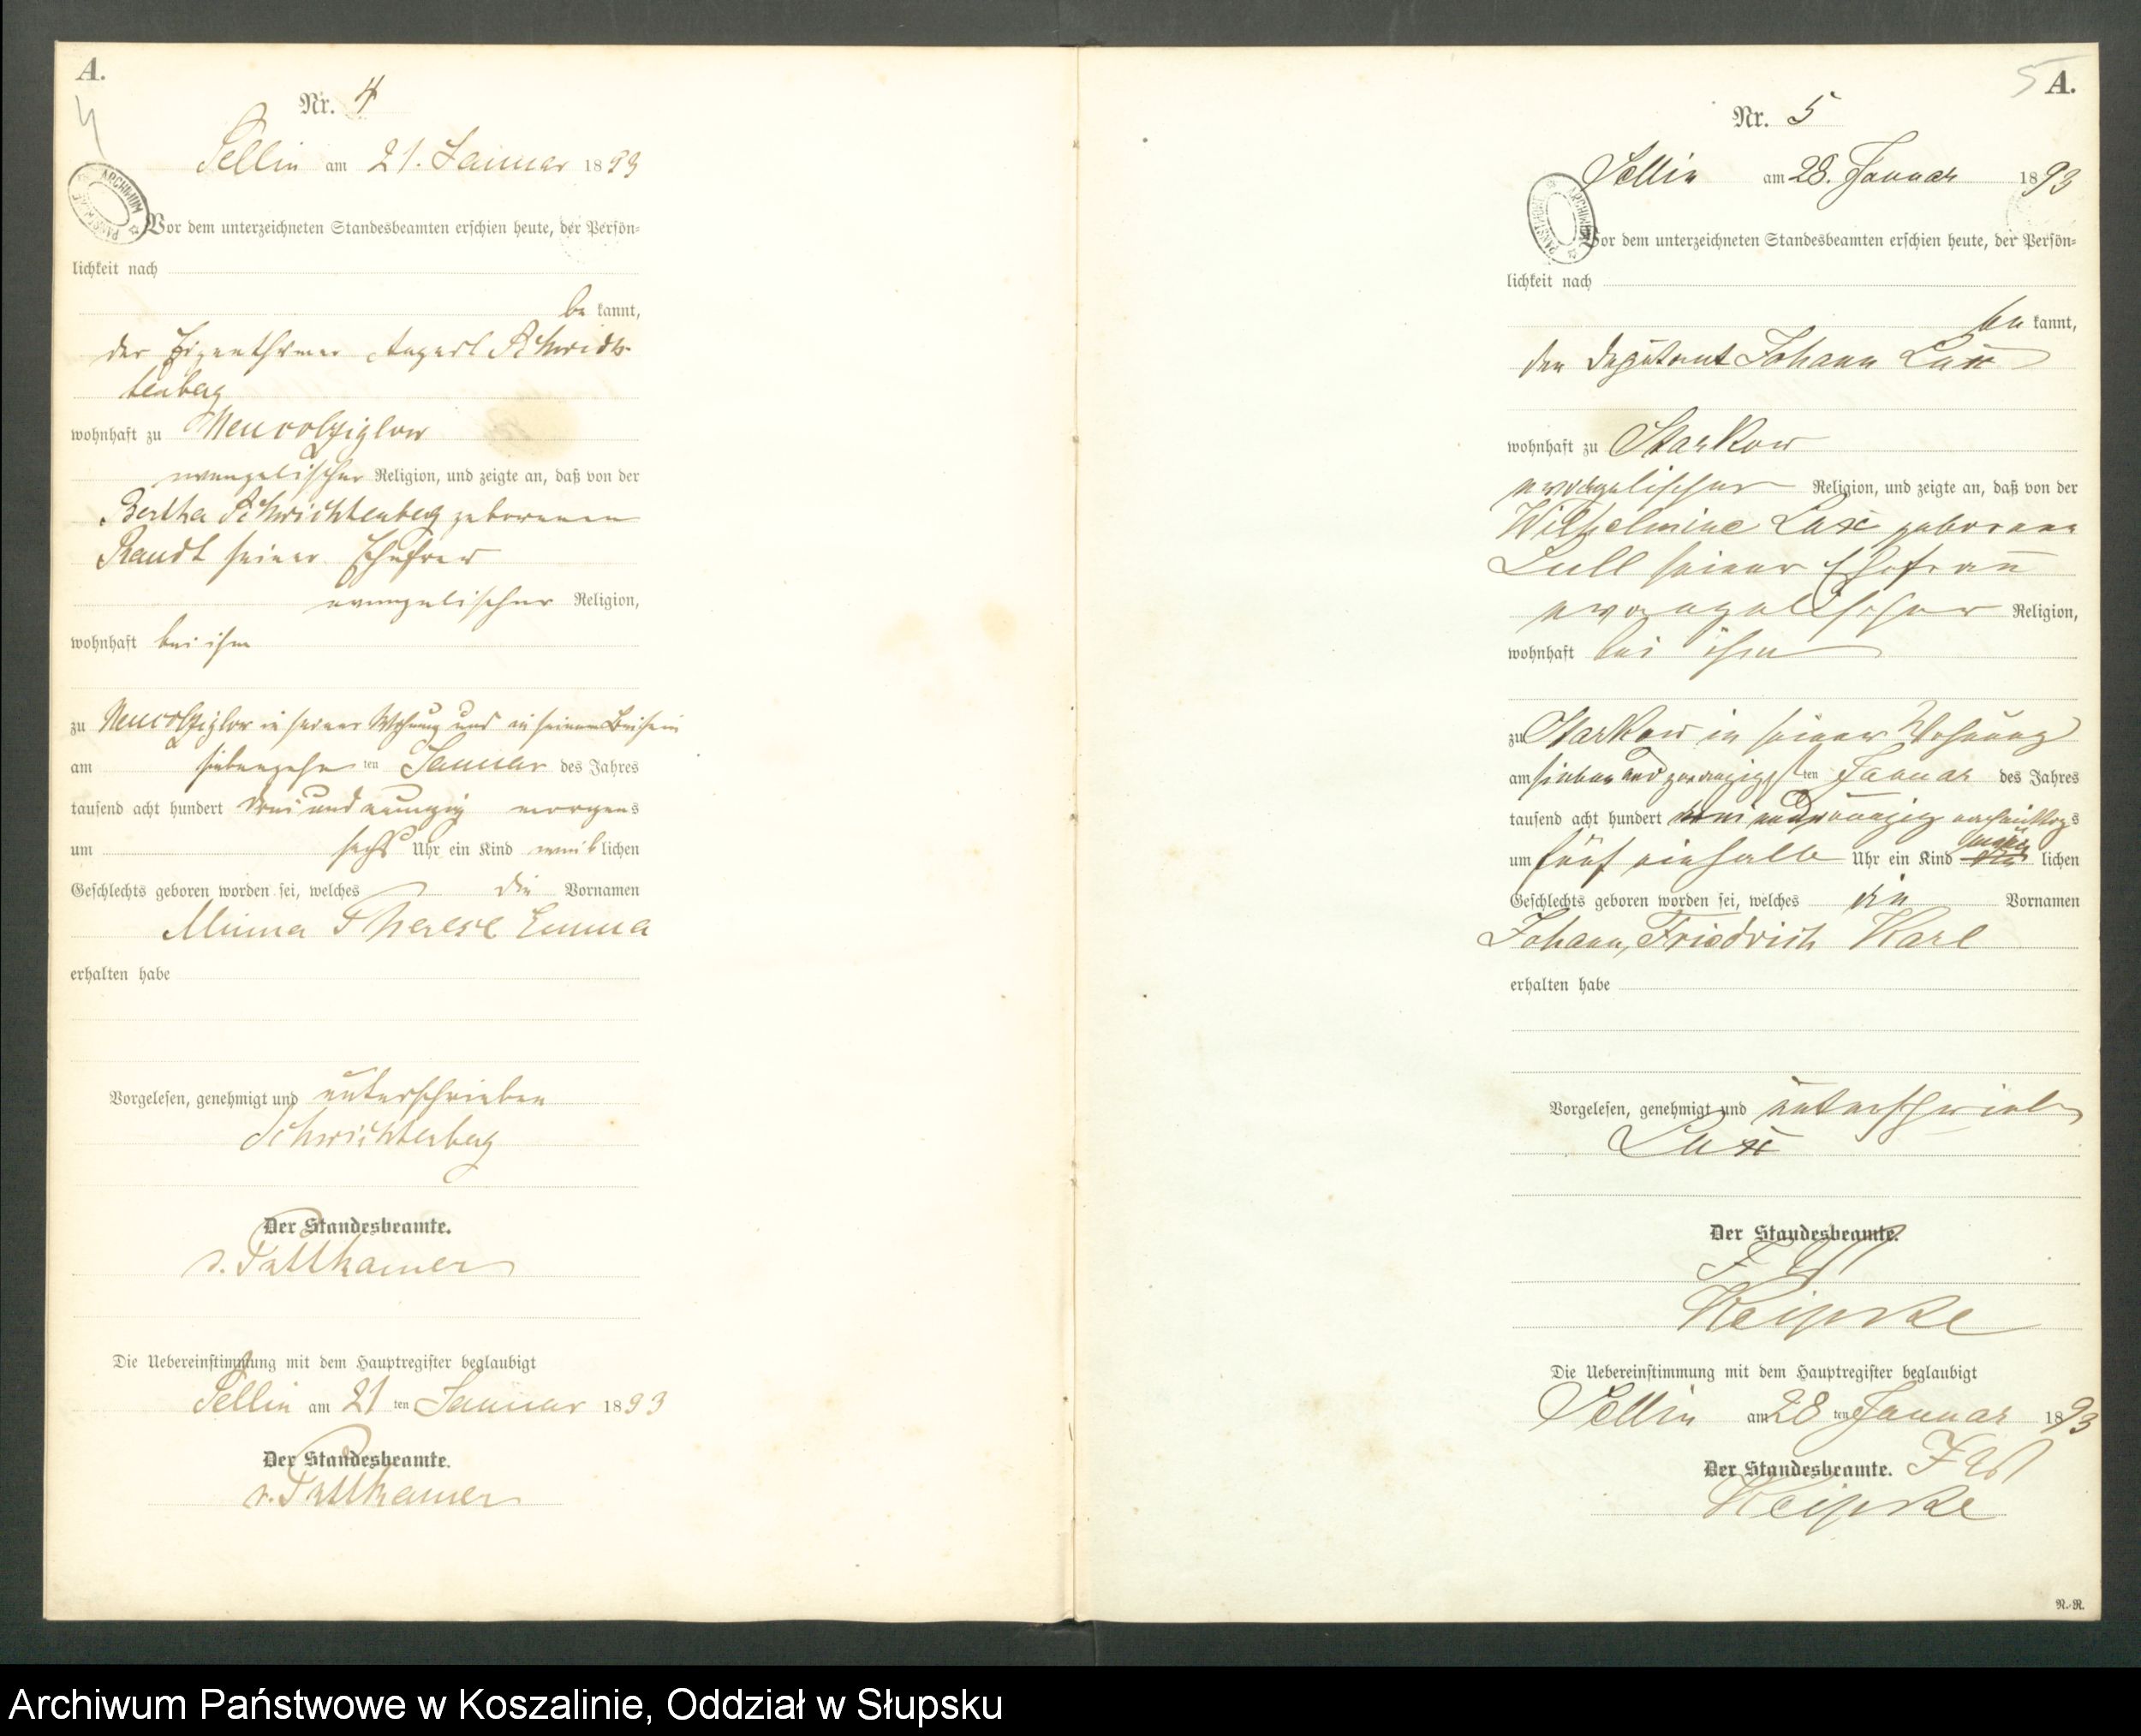 A.
4
Nr. 4
Sellin am 21. Januar 1893
ARCHIWUM PAŃSTWOWE
Vor dem unterzeichneten Standesbeamten erschien heute, der Persön=
lichkeit nach
be kannt,
der Eigenthümer August Schwich-
tenberg
wohnhaft zu Neucolziglow
evangelischer Religion, und zeigte an, daß von der
Bertha Schwichtenberg geborenen
Raudt seiner Ehefrau
evangelischer Religion,
wohnhaft bei ihm
zu Neucolziglow in seiner Wohnung und in seinem Beisein
am siebenzehn ten Januar des Jahres
tausend acht hundert drei und neunzig morgens
um sechs Uhr ein Kind weib lichen
Geschlechts geboren worden sei, welches die Vornamen
Minna Therese Emma
erhalten habe
Vorgelesen, genehmigt und unterschrieben
Schwichtenberg
Der Standesbeamte.
v. Puttkamer
Die Uebereinstimmung mit dem Hauptregister beglaubigt
Sellin am 21 ten Januar 1893
Der Standesbeamte.
v. Puttkamer
5 A.
Nr. 5
Sellin am 28. Januar 1893
ARCHIWUM PAŃSTWOWE
Vor dem unterzeichneten Standesbeamten erschien heute, der Persön=
lichkeit nach
be kannt,
der Deputant Johann Lux
wohnhaft zu Starkow
evangelischer Religion, und zeigte an, daß von der
Wilhelmine Lux geborene
Lull seiner Ehefrau
evangelischer Religion,
wohnhaft bei ihm
zu Starkow in seiner Wohnung
am sieben und zwanzigsten Januar des Jahres
tausend acht hundert drei und neunzig nachmittags
um fünf einhalb Uhr ein Kind männ lichen
Geschlechts geboren worden sei, welches die Vornamen
Johann, Friedrich Karl
erhalten habe
Vorgelesen, genehmigt und unterschrieben
Lux
Der Standesbeamte.
Die Uebereinstimmung mit dem Hauptregister beglaubigt
Sellin am 28 ten Januar 1893
Der Standesbeamte.
N.-R.
Archiwum Państwowe w Koszalinie, Oddział w Słupsku